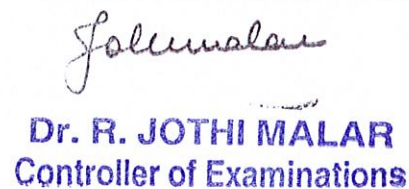 Jothimalar
Dr. R. JOTHI MALAR
Controller of Examinations